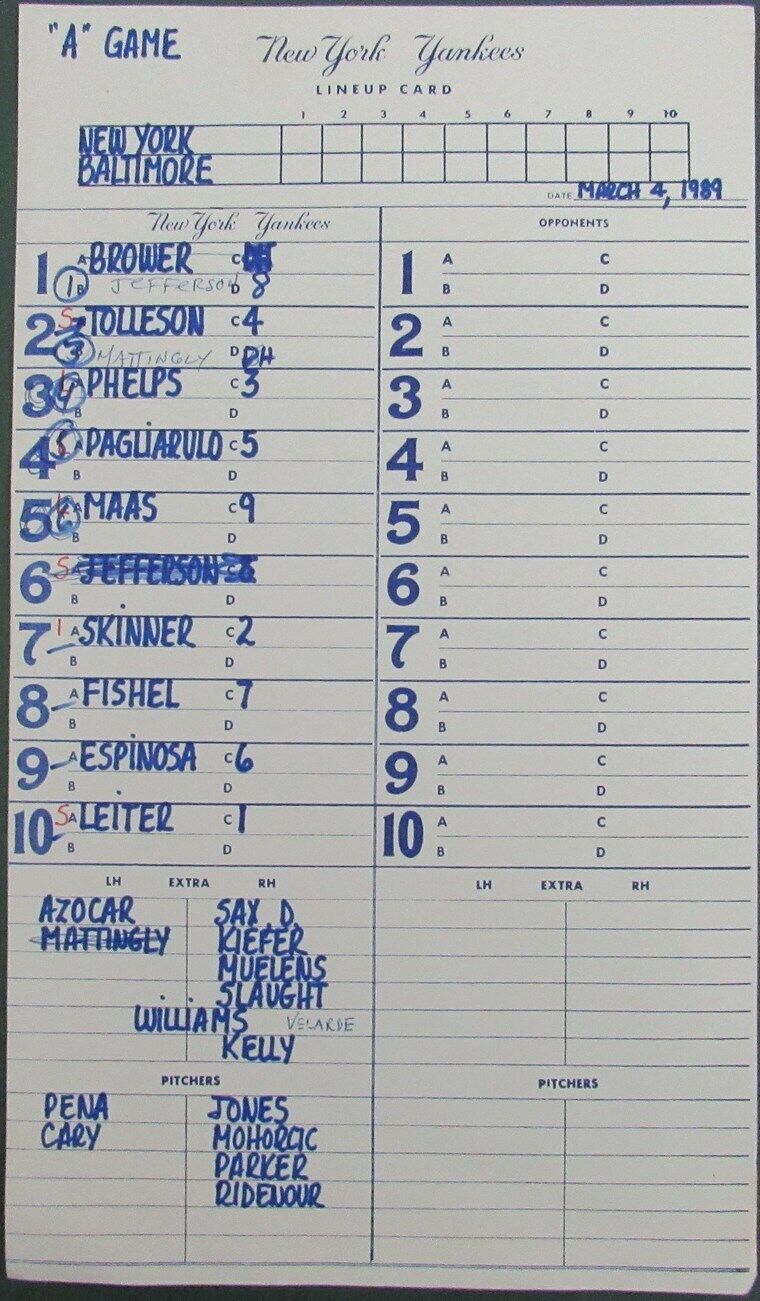 "A" GAME
New York Yankees
LINEUP CARD
1 2 3 4 5 6 7 8 9 10
NEW YORK
BALTIMORE
DATE MARCH 4, 1989
New York Yankees OPPONENTS
1 A BROWER C DH 1 A C
1 B JEFFERSON D 8 B D
2 S A TOLLESON C 4 2 A C
3 B MATTINGLY D DH B D
3 L A PHELPS C 3 3 A C
4 B D B D
4 L A PAGLIARULO C 5 4 A C
5 B D B D
5 L A MAAS C 9 5 A C
6 B D B D
6 S A JEFFERSON C 8 6 A C
B D B D
7 1 A SKINNER C 2 7 A C
B D B D
8 A FISHEL C 7 8 A C
B D B D
9 A ESPINOSA C 6 9 A C
B D B D
10 S A LEITER C 1 10 A C
B D B D
LH EXTRA RH LH EXTRA RH
AZOCAR SAX D.
MATTINGLY KIEFER
MUELENS
SLAUGHT
WILLIAMS VELARDE
KELLY
PITCHERS PITCHERS
PENA JONES
CARY MOHORCIC
PARKER
RIDENOUR